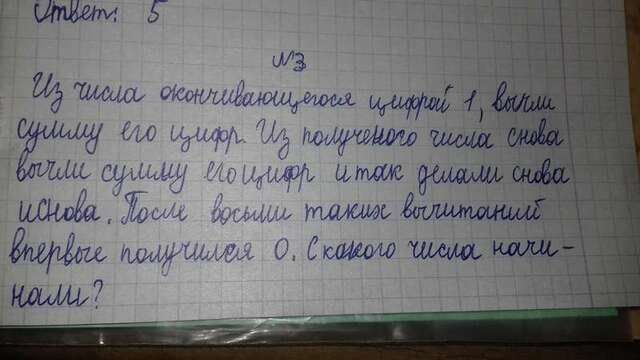 Ответ: 5
№3
Из числа оканчивающегося цифрой 1, вычли
сумму его цифр. Из полученого числа снова
вычли сумму его цифр и так делали снова
и снова. После восьми таких вычитаний
впервые получился 0. С какого числа начи-
нали?